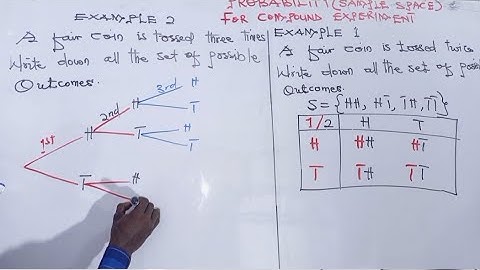 PROBABILITY (SAMPLE SPACE)
FOR COMPOUND EXPERIMENT
EXAMPLE 2
A fair coin is tossed three times
Write down all the set of possible
Outcomes.
1st
2nd
3rd
H
H
H
T
T
H
T
T
H
EXAMPLE 1
A fair coin is tossed twice
Write down all the set of possi
Outcomes.
S = {HH, HT, TH, TT}
1/2 H T
H HH HT
T TH TT